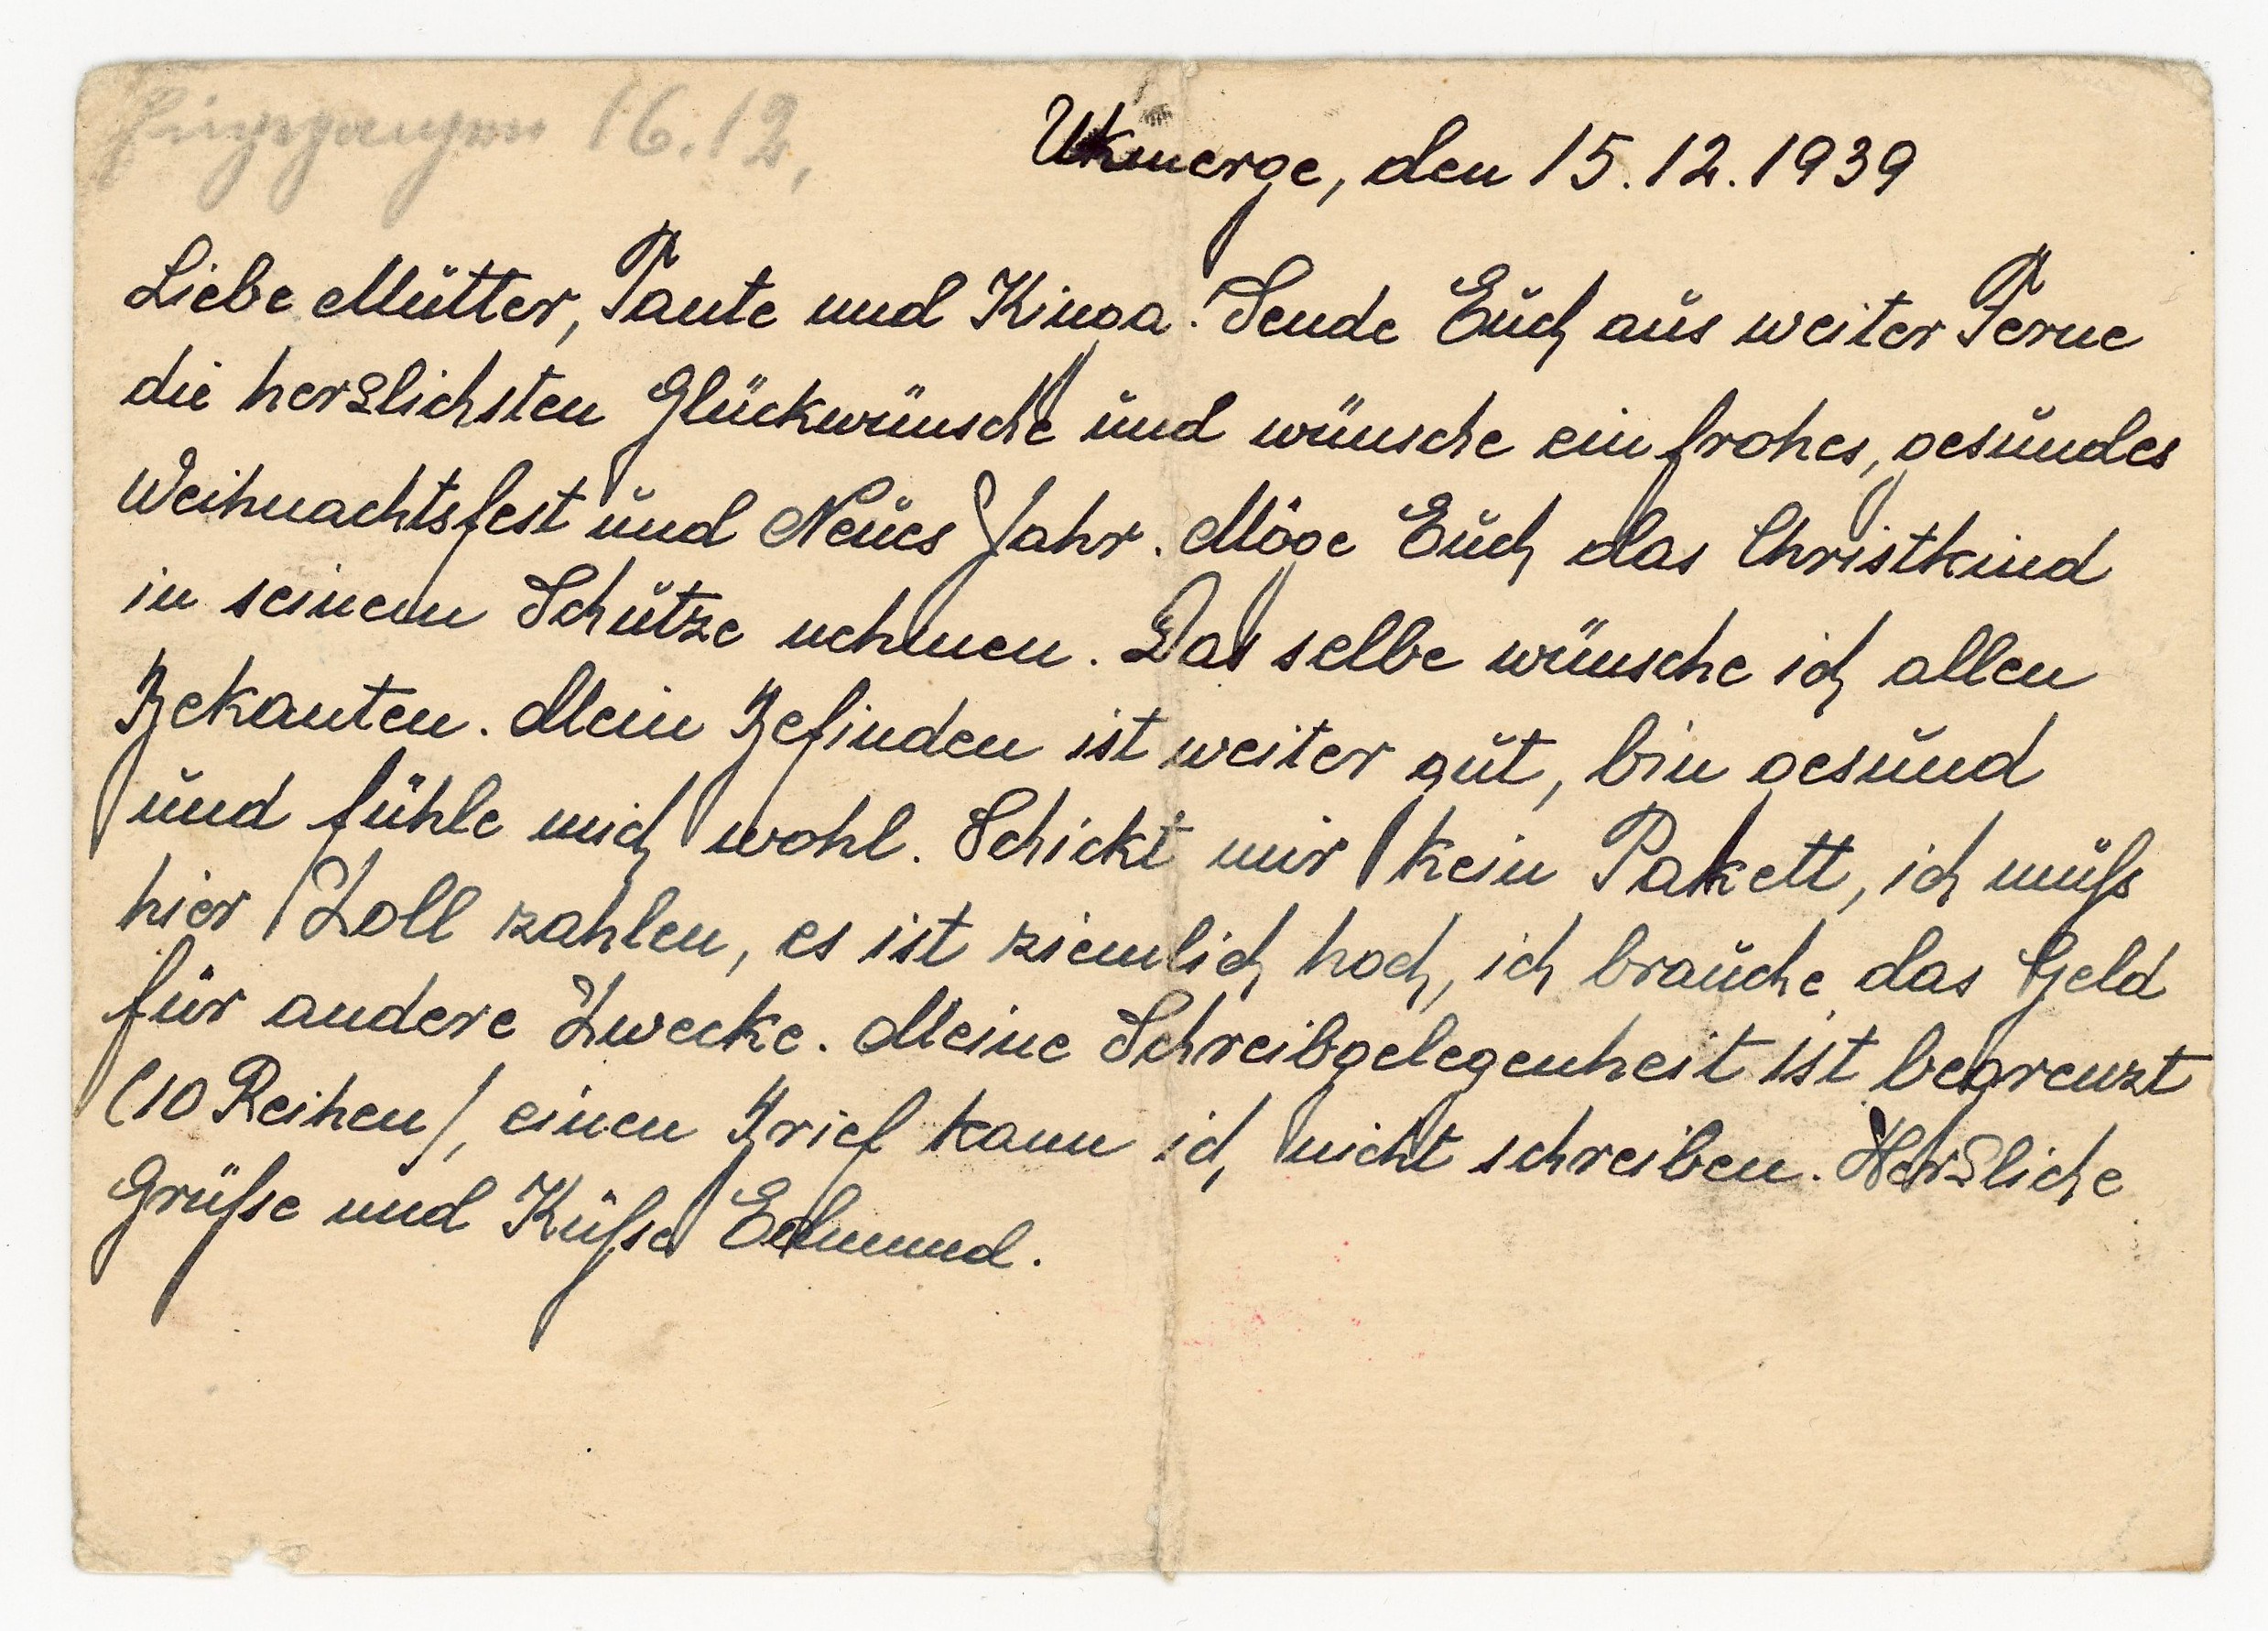 Eingegangen 16.12,
Ukmerge, den 15.12.1939
Liebe Mutter, Tante und Kinga! Sende Euch aus weiter Ferne
die herzlichsten Glückwünsche und wünsche ein frohes, gesundes
Weihnachtsfest und Neues Jahr. Möge Euch das Christkind
in seinem Schutze nehmen. Das selbe wünsche ich allen
Bekanten. Mein Befinden ist weiter gut, bin gesund
und fühle mich wohl. Schickt mir kein Pakett, ich muß
hier Zoll zahlen, es ist ziemlich hoch, ich brauche das Geld
für andere Zwecke. Meine Schreibgelegenheit ist begrenzt
(10 Reihen), einen Brief kann ich nicht schreiben. Herzliche
Grüße und Küße Edmund.